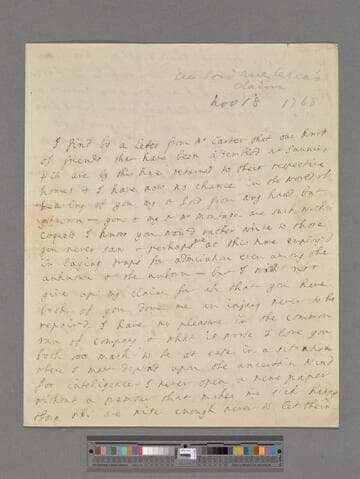 Nov 18 1763
I find by a Letter from Mrs Carter that our knot
of friends that have been assembled at
are by this time returned to their respective
homes & I have now no chance in the world of
hearing of you my & Lord from any hand but
your own — you & my & Mrs Montagu are such
I know you would rather write to those
you never saw — perhaps at this time employ'd
in laying traps for admiration even among the
unknown & the unborn — but I will not
give up my claim for all that you have
both of you done me an injury never to be
repair'd I have no pleasure in the common
run of company & what is worse I love you
both too much to be at ease in a situation
where I must depend upon the uncertain Wind
for intelligence I never open a news paper
without a tremor that makes me sick — happy
they who are wise enough never to let their